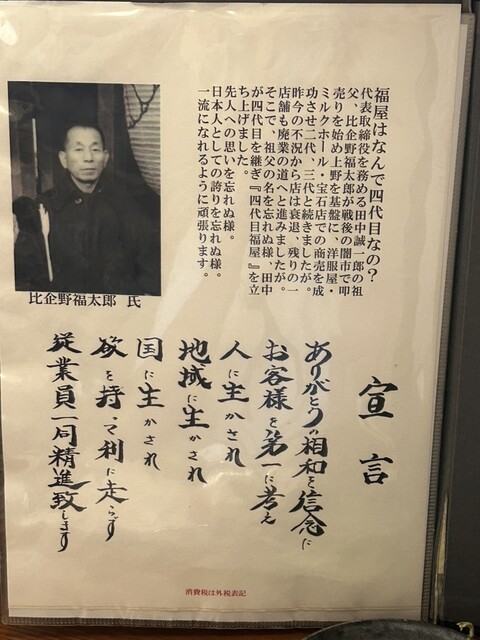 福屋はなんで四代目なの？
代表取締役を務める田中誠一郎の祖
父、比企野福太郎が戦後の闇市で叩
売りを始め上野を基盤に、洋服屋・
ミルクホール・宝石店での商売を成
功させ二代、三代と続きましたが。
昨今の不況から店は衰退、残りの一
店舗も廃業の道へと進みましたが。
そこで、祖父の名を忘れぬ様、田中
が四代目を継ぎ『四代目福屋』を立
ち上げました。
先人への思いを忘れぬ様。
日本人としての誇りを忘れぬ様。
一流になれるように頑張ります。
比企野福太郎 氏
宣言
ありがとうの相和を信念に
お客様を第一に考え
人に生かされ
地域に生かされ
国に生かされ
欲を持って利に走らず
従業員一同精進致します
消費税は外税表記